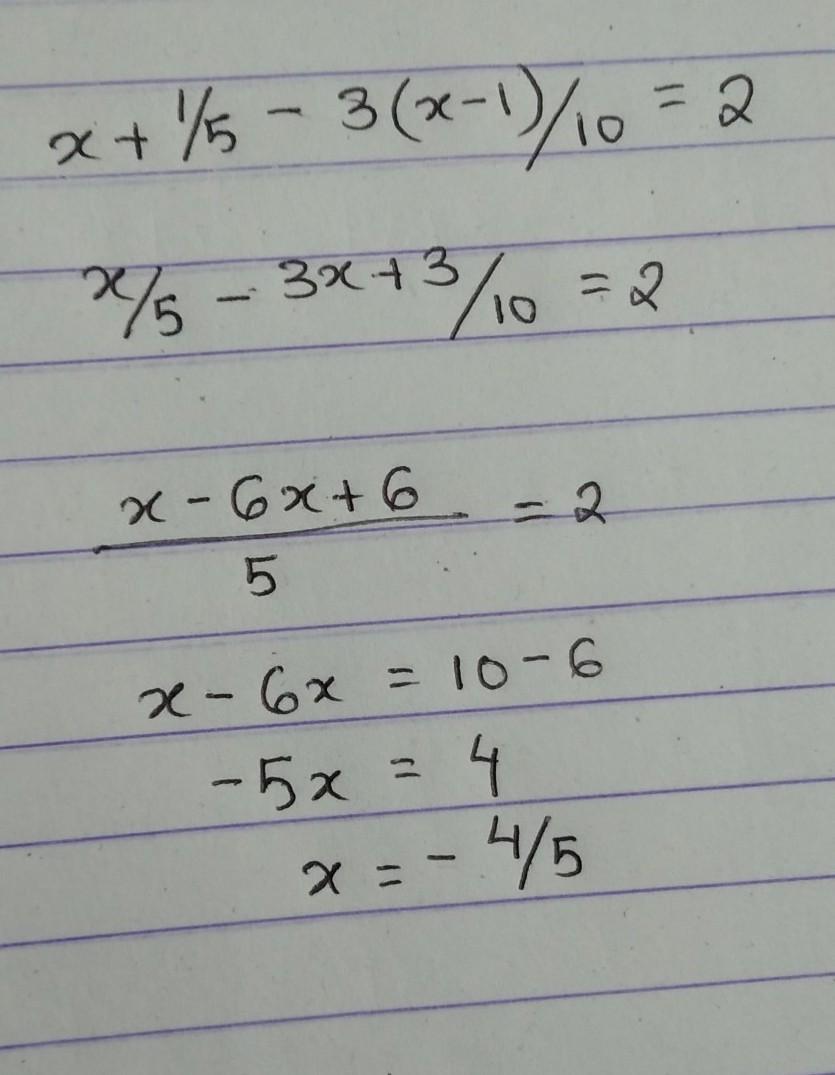 x + 1/5 - 3(x-1)/10 = 2
x/5 - 3x+3/10 = 2
x - 6x + 6 / 5 = 2
x - 6x = 10 - 6
-5x = 4
x = - 4/5